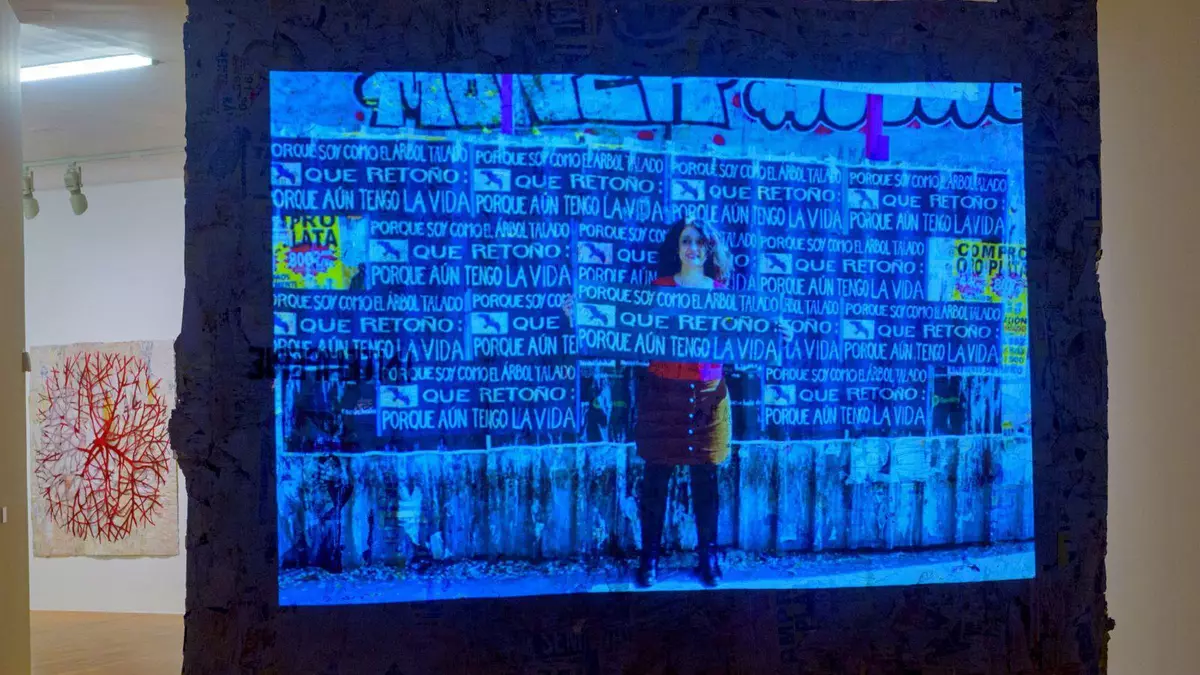 MONEY
PORQUE SOY COMO EL ÁRBOL TALADO
QUE RETOÑO:
PORQUE AÚN TENGO LA VIDA
PORQUE SOY COMO EL ÁRBOL TALADO
QUE RETOÑO:
PORQUE AÚN TENGO LA VIDA
PORQUE SOY COMO EL ÁRBOL TALADO
QUE RETOÑO:
PORQUE AÚN TENGO LA VIDA
PORQUE SOY COMO EL ÁRBOL TALADO
QUE RETOÑO:
PORQUE AÚN TENGO LA VIDA
PRO
LATA
800
PORQUE SOY COMO EL ÁRBOL TALADO
QUE RETOÑO:
PORQUE AÚN TENGO LA VIDA
PORQUE SOY CO
QUE
PORQUE SOY COMO EL ÁRBOL TALADO
QUE RETOÑO:
PORQUE AÚN TENGO LA VIDA
COMPRO
ORO PLATA
800
PORQUE SOY COMO EL ÁRBOL TALADO
QUE RETOÑO:
PORQUE AÚN TENGO LA VIDA
PORQUE SOY CO
QUE
PORQUE AÚN TE
PORQUE SOY COMO EL ÁRBOL TALADO
QUE RETOÑO:
PORQUE AÚN TENGO LA VIDA
PORQUE SOY COMO EL ÁRBOL TALADO
QUE RETOÑO:
PORQUE AÚN TENGO LA VIDA
PORQUE SOY COMO EL ÁRBOL TALADO
QUE RETOÑO:
PORQUE AÚN TENGO LA VIDA
PORQUE SOY COMO EL ÁRBOL TALADO
QUE RETOÑO:
PORQUE AÚN TENGO LA VIDA